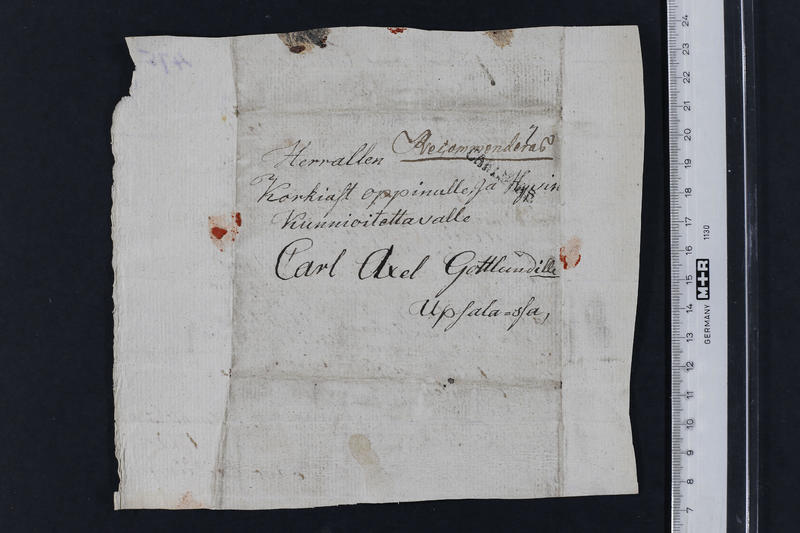 Recommenderas
Herrallen
Korkiast oppinulle, ja Hyvin
Kunnioitettavalle
Carl Axel Gottlundille
Upsala=ssa,
24
23
22
21
20
19
18
17
16
15
14
13
12
11
10
9
8
7
GERMANY M+R 1130